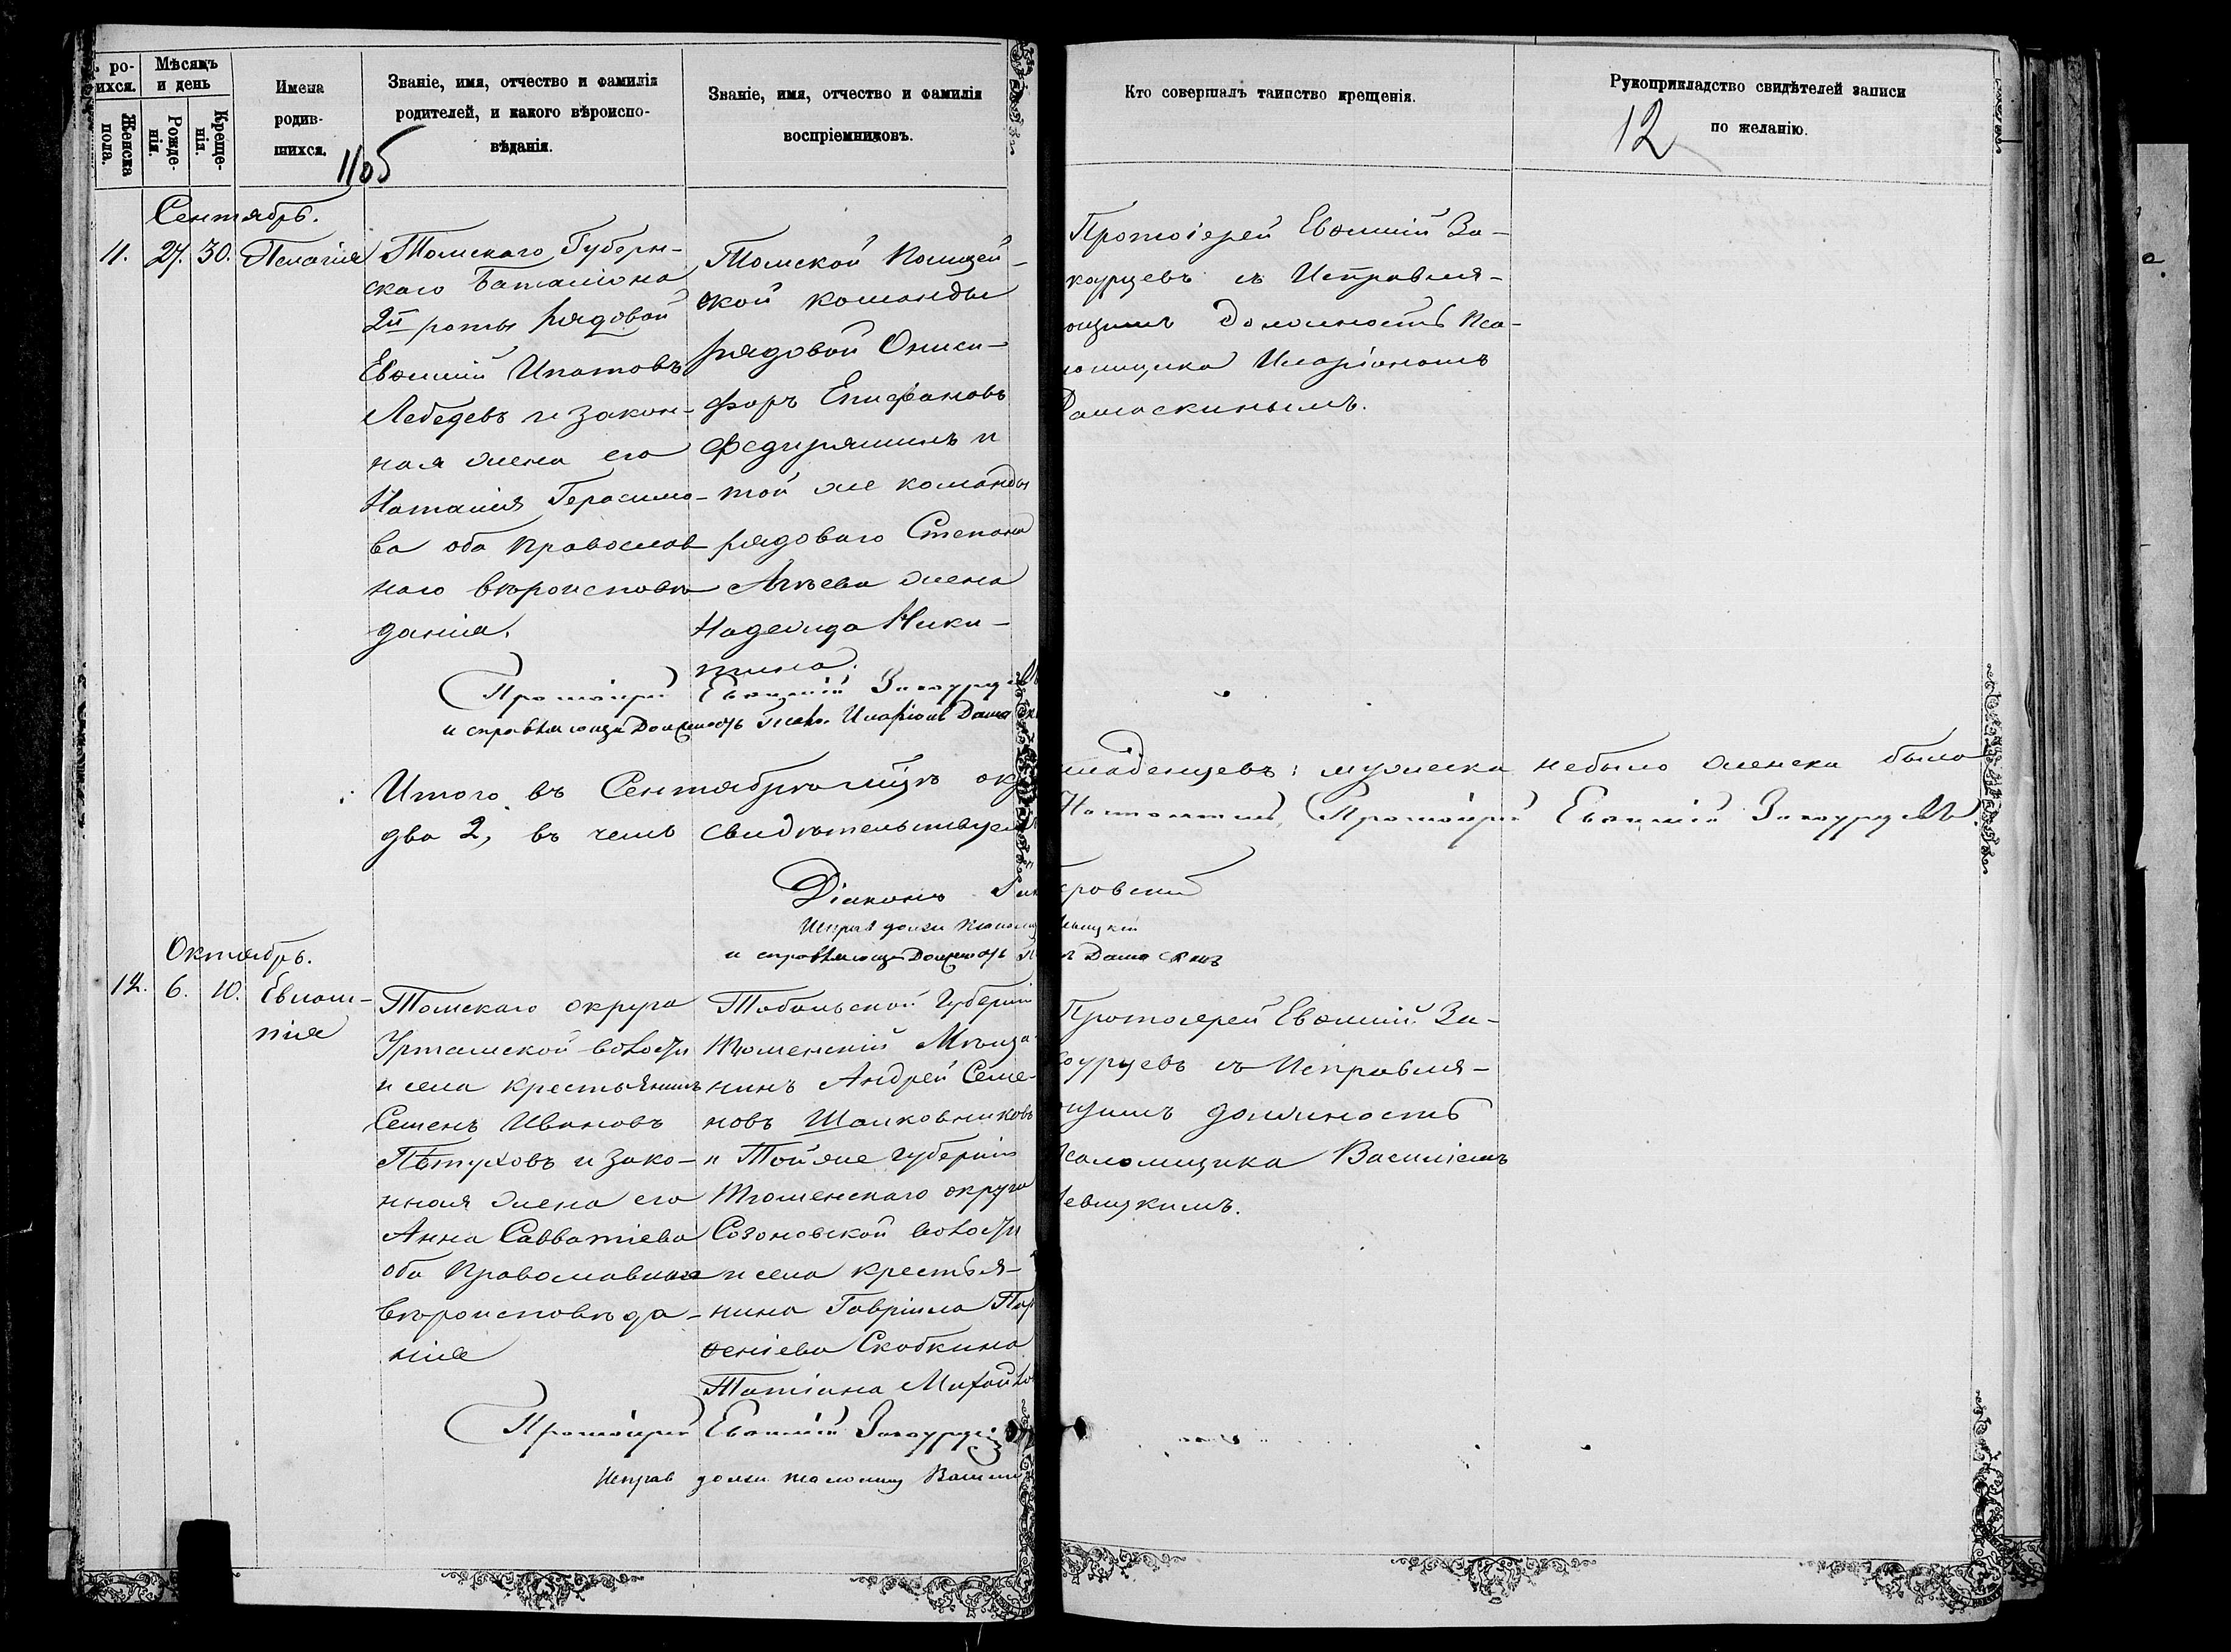 ро-
ихся.
Мѣсяцъ
и день
Женска
пола.
Рожде-
нія.
Креще-
нія.
Имена
родив-
шихся.
Званіе, имя, отчество и фамилія
родителей, и какого вѣроиспо-
вѣданія.
Званіе, имя, отчество и фамилія
воспріемниковъ.
Кто совершалъ таинство крещенія.
Рукоприкладство свидѣтелей записи
по желанію.
12
Сентябрь.
11. 27. 30. Пелагія
Томскаго Губерн-
скаго баталіона
2й роты рядовой
Евѳимій Ипатовъ
Лебедевъ и закон-
ная жена его
Наталія Герасимо-
ва оба православ
наго вѣроисповѣ
данія.
Томской Полицей-
ской команды
рядовой Ониси-
форъ Епифановъ
и
той же команды
рядоваго Степана
жена
Надежда Ники-
тина.
Протоіерей Евѳимій За-
коурцевъ съ Исправля-
ющимъ должность Пса-
ломщика Иларіономъ
Дамаскинымъ.
Протоіерей Евѳимій Закоурцевъ
исправляющій должность Псал. Иларіонъ Дамаскинъ
Итого въ Сентябрѣ мцѣ младенцевъ: мужеска небыло женска было
два 2, въ чемъ свидѣтельствуемъ Протоіерей Евѳимій Закоурцевъ.
Діаконъ
Исправ должн
исправляющій должность Дамаскинъ
Октябрь.
12. 6. 10. Евлам-
пія
Томскаго округа
Уртамской волости
и села крестьянинъ
Семенъ Ивановъ
Пѣтуховъ и зако-
нная жена его
Анна Савватіева
оба Православнаго
вѣроисповѣда-
нія
Тобольской Губерніи
Тюменскій Мѣща-
нинъ Андрей Семе-
новъ Шалковниковъ
и Той же губерніи
Тюменскаго округа
Созоновской волости
и села крестья-
нина Гавріила Пар
ѳеніева Скобкина
Татіана Михайло
Протоіерей Евѳимій За-
коурцевъ съ Исправля-
ющимъ должность
Псаломщика Василіемъ
Левицкимъ.
Протоіерей Евѳимій Закоурцевъ
Исправ должн псаломщ Василій